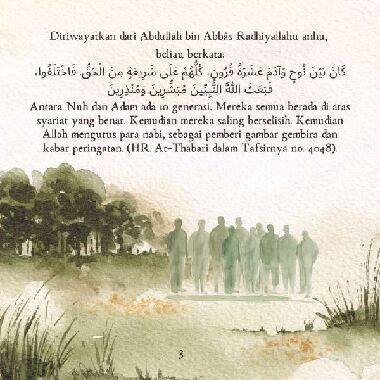 Diriwayatkan dari Abdullah bin Abbas Radhiyallahu anhu,
beliau berkata:
كَانَ بَيْنَ نُوحٍ وَآدَمَ عَشَرَةُ قُرُونٍ، كُلُّهُمْ عَلَى شَرِيعَةٍ مِنَ الْحَقِّ. فَاخْتَلَفُوا،
فَبَعَثَ اللَّهُ النَّبِيِّينَ مُبَشِّرِينَ وَمُنْذِرِينَ
Antara Nuh dan Adam ada 10 generasi. Mereka semua berada di atas
syariat yang benar. Kemudian mereka saling berselisih. Kemudian
Allah mengutus para nabi, sebagai pemberi gambar gembira dan
kabar peringatan. (HR. At-Thabari dalam Tafsirnya no. 4048).
3